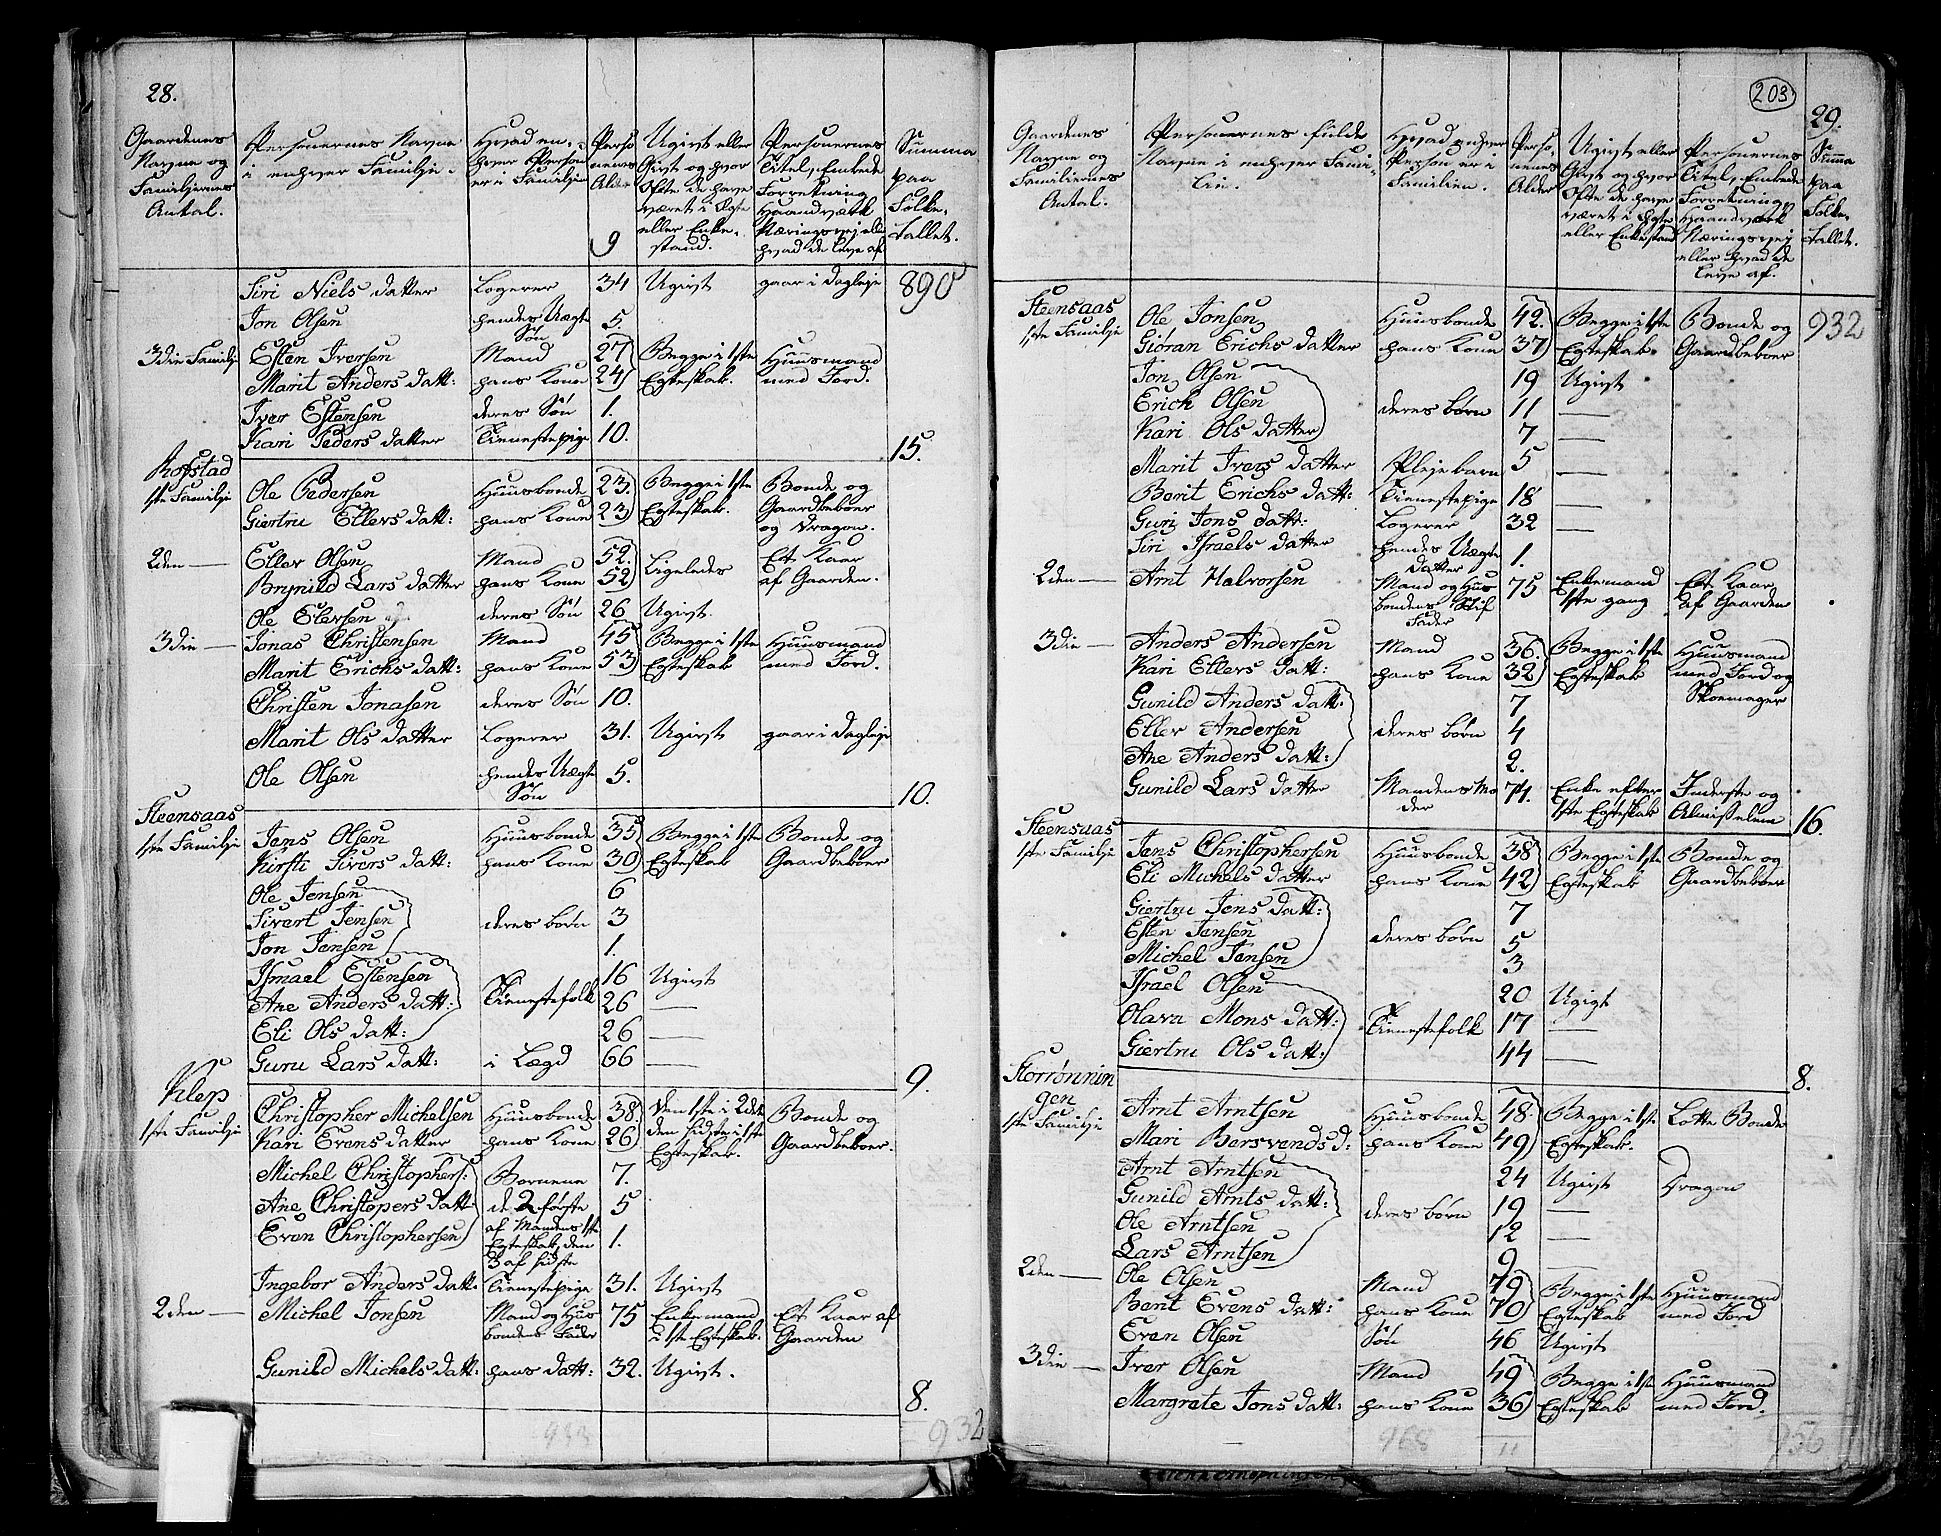 28.
Gaardenes Navne og Familjernes Antal. | Personernes Navne i enhver Familje. | Hvad en hver Person er i Familjen | Personernes Alder | Ugivt eller Givt og hvor Ofte de have været i Egte eller Enkestand. | Personernes Titel, Embede Forretning Haandværk Næringsvej eller hvad de leve af | Summa paa Folketallet.
9
Siri Niels datter | Logerer | 34 | Ugivt | gaar i dagleje | 890
Jon Olsen | hendes Uægte Søn | 5.
3die Familje | Esten Iversen | Mand | 27 | Begge i 1ste | Huusmand
Marit Anders datt: | hans Kone | 24 | Egteskab. | med Jord.
Iver Estensen | deres Søn | 1.
Kari Peders datter | Tienestepige | 10. | 15.
Rofstad
1ste Familje | Ole Pedersen | Huusbonde | 23. | Begge i 1ste | Bonde og
Giertru Ellers datt: | hans Kone | 23 | Egteskab. | Gaardbeboer og Dragon.
2den — | Eller Olsen | Mand | 52. | Ligeledes | Et Kaar
Brynild Lars datter | hans Kone | 52 | af Gaarden.
Ole Elersen | deres Søn | 26 | Ugivt.
3die — | Jonas Christensen | Mand | 45 | Begge i 1ste | Huusmand
Marit Erichs datt: | hans Kone | 53 | Egteskab | med Jord.
Christen Jonasen | deres Søn | 10.
Marit Ols datter | Logerer | 31. | Ugivt | gaar i dagleje
Ole Olsen | hendes Uægte Søn | 5. | 10.
Steensaas
1ste Familje | Jens Olsen | Huusbonde | 35 | Begge i 1ste | Bonde og
Kirsti Sivers datt: | hans Kone | 30 | Egteskab | Gaardbeboer
Ole Jensen | 6
Sivert Jensen | deres børn | 3
Jon Jensen | 1.
Ismael Estensen | 16 | Ugivt
Ane Anders datt: | Tienestefolk | 26 | —
Eli Ols datt: | 26 | —
Guru Lars datt: | i Lægd | 66 | — | 9.
Klep
1ste Familje | Christopher Michelsen | Huusbonde | 38 | den 1ste i 2det | Bonde og
Kari Evens datter | hans Kone | 26 | den sidste i 1ste Egteskab. | Gaardbeboer.
Michel Christophers: | Bornene | 7.
Ane Christopers datt | de 2 første | 5
Even Christophersen | af Mandens 1ste Egteskab, den 3 af sidste | 1.
Ingebor Anders datt: | Tienestepige | 31. | Ugivt
2den — | Michel Jonsen | Mand og Huusbondens Fader | 75 | Enkemand i 1ste Egteskab. | Et Kaar af Gaarden
Gunild Michels datt: | hans datt: | 32. | Ugivt. | 8.
932
203
29.
Gaardenes Navne og Familiernes Antal. | Personernes fulde Navne i enhver Familie. | Hvad enhver Person er i Familien. | Personernes Alder | Ugivt eller Givt og hvor Ofte de have været i Egte eller Enkestand | Personernes Titel, Embede Forretning, Haandværk Næringsvej eller hvad de leve af. | Summa paa Folketallet.
Steensaas
1ste Familje | Ole Jonsen | Huusbonde | 42. | Begge i 1ste | Bonde og | 932
Gioran Erichs datter | hans Kone | 37 | Egteskab. | Gaardbeboer
Jon Olsen | 19 | Ugivt
Erich Olsen | deres børn | 11 | —
Kari Ols datter | 7 | —
Marit Ivers datter | Plejebarn | 5 | —
Berit Erichs datt: | Tienestepige | 18 | —
Guri Jons datt: | Logerer | 32 | —
Siri Israels datter | hendes Uægte datter | 1.
2den — | Arnt Halvorsen | Mand og Huusbondens Stiffader | 75 | Enkemand 1ste gang | Et Kaar af Gaarden
3die — | Anders Andersen | Mand | 36. | Begge i 1ste | Huusmand
Kari Ellers datt: | hans Kone | 32 | Egteskab | med Jord og Skoemager
Gunild Anders datt. | 7
Eller Andersen | deres børn | 4
Ane Anders datt: | 2.
Gunild Lars datter | Mandens Moder | 74. | Enke efter 1ste Egteskab | Inderste og Almisselem | 16.
Steensaas
1ste Familje | Jens Christophersen | Huusbonde | 38 | Begge i 1ste | Bonde og
Eli Michels datter | hans Kone | 42 | Egteskab | Gaardbeboer
Giertru Jens datt: | 7
Esten Jensen | deres børn | 5
Michel Jensen | 3
Israel Olsen | 20 | Ugigt
Olava Mons datt: | Tienestefolk | 17 | —
Giertru Ols datt: | 44 | — | 8.
Storrønningen
1ste Familje | Arnt Arntsen | Huusbonde | 48. | Begge i 1ste | Lotte Bonde
Mari Bersvends d: | hans Kone | 49 | Egteskab.
Arnt Arntsen | 24 | Ugivt | Dragon
Gunild Arnts datt: | deres børn | 19 | —
Ole Arntsen | 12 | —
Lars Arntsen | 9 | —
2den — | Ole Olsen | Mand | 79 | Begge i 1ste | Huusmand
Berit Evens datt: | hans Kone | 70 | Egteskab | med Jord
Even Olsen | Søn | 46 | Ugivt
3die — | Iver Olsen | Mand | 49 | Begge i 1ste | Huusmand
Margrete Jons datt: | hans Kone | 36 | Egteskab | med Jord.
968 | 11 | 956